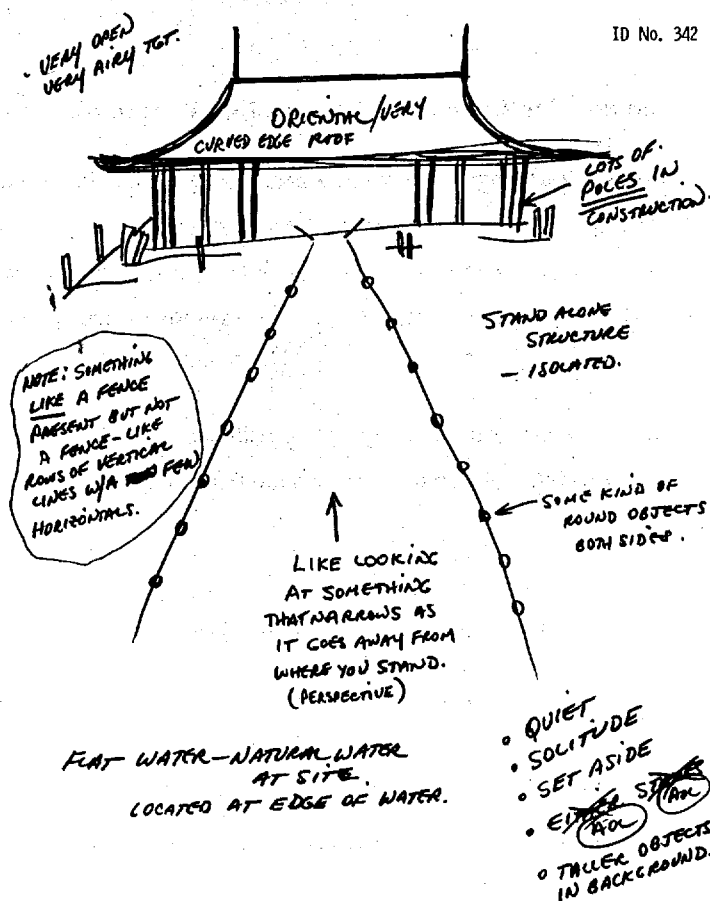 ID No. 342
· VERY OPEN
VERY AIRY TGT.
ORIENTAL/VERY
CURVED EDGE ROOF
LOTS OF
POLES IN
CONSTRUCTION.
STAND ALONE
STRUCTURE
— ISOLATED.
NOTE: SOMETHING
LIKE A FENCE
PRESENT BUT NOT
A FENCE-LIKE
ROWS OF VERTICAL
LINES W/A FEW
HORIZONTALS.
SOME KIND OF
ROUND OBJECTS
BOTH SIDES.
LIKE LOOKING
AT SOMETHING
THAT NARROWS AS
IT GOES AWAY FROM
WHERE YOU STAND.
(PERSPECTIVE)
FLAT WATER—NATURAL WATER
AT SITE.
LOCATED AT EDGE OF WATER.
• QUIET
• SOLITUDE
• SET ASIDE
• EITHER
AOL
AOL
• TALLER OBJECTS
IN BACKGROUND.